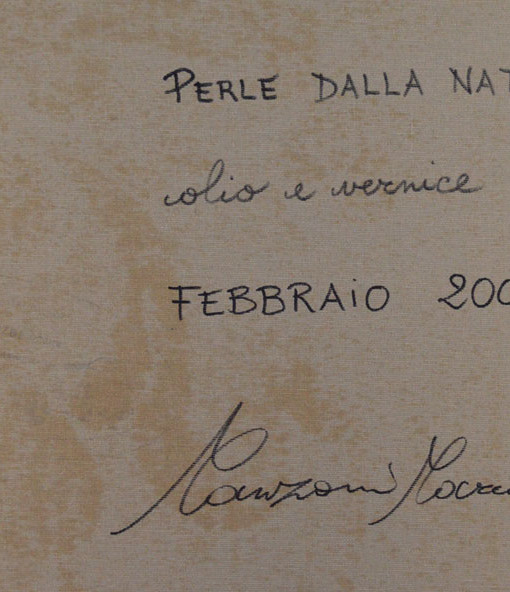 PERLE DALLA NAT
olio e vernice
FEBBRAIO 200
Manzoni